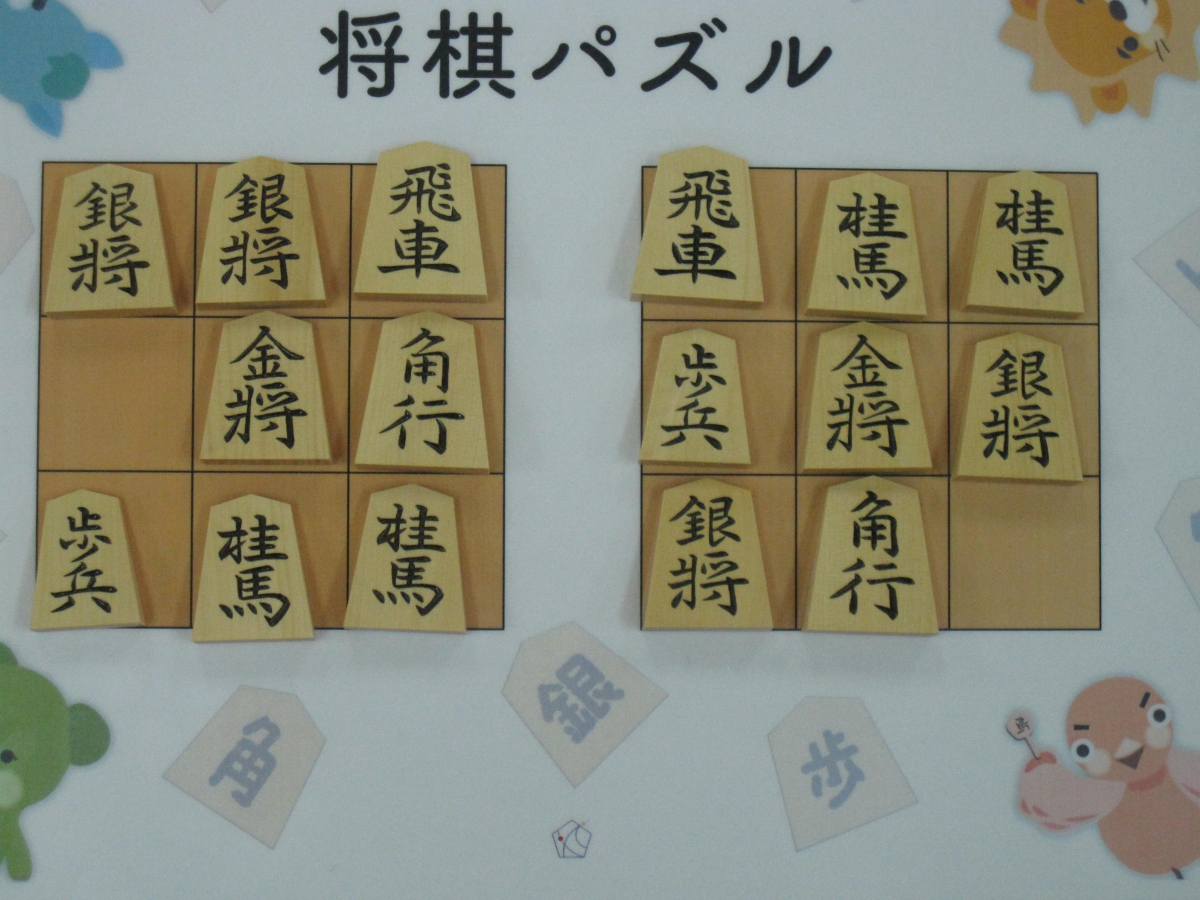 将棋パズル
銀将 銀将 飛車 飛車 桂馬 桂馬
金将 角行 歩兵 金将 銀将
歩兵 桂馬 桂馬 銀将 角行
銀
角 歩